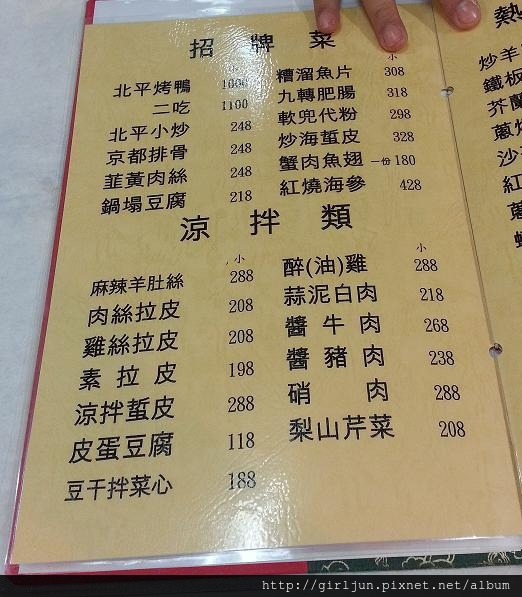 招牌菜
小
北平烤鴨 1000
二吃 1100
北平小炒 248
京都排骨 248
韮黃肉絲 248
鍋塌豆腐 218
小
糟溜魚片 308
九轉肥腸 318
軟兜代粉 298
炒海蜇皮 328
蟹肉魚翅 一份180
紅燒海參 428
涼拌類
小
麻辣羊肚絲 288
肉絲拉皮 208
雞絲拉皮 208
素拉皮 198
涼拌蜇皮 288
皮蛋豆腐 118
豆干拌菜心 188
小
醉(油)雞 288
蒜泥白肉 218
醬牛肉 268
醬豬肉 238
硝肉 288
梨山芹菜 208
熱
炒羊
鐵板
芥蘭
蔥
沙
紅
蔥
http://girljun.pixnet.net/album